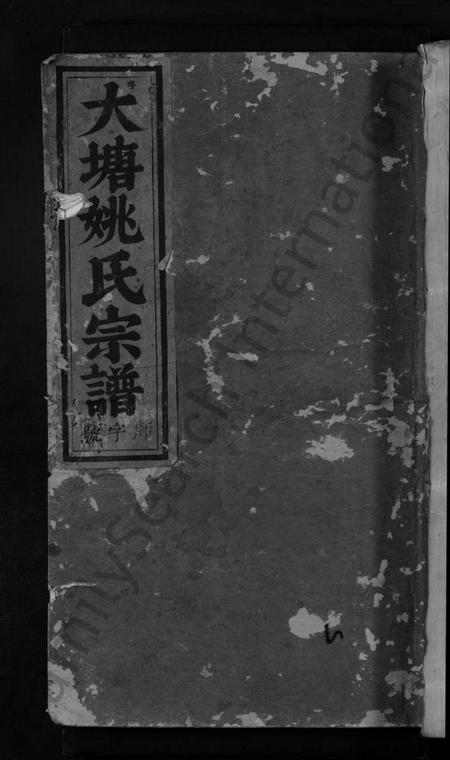 大塘姚氏宗譜
字號
FamilySearch International